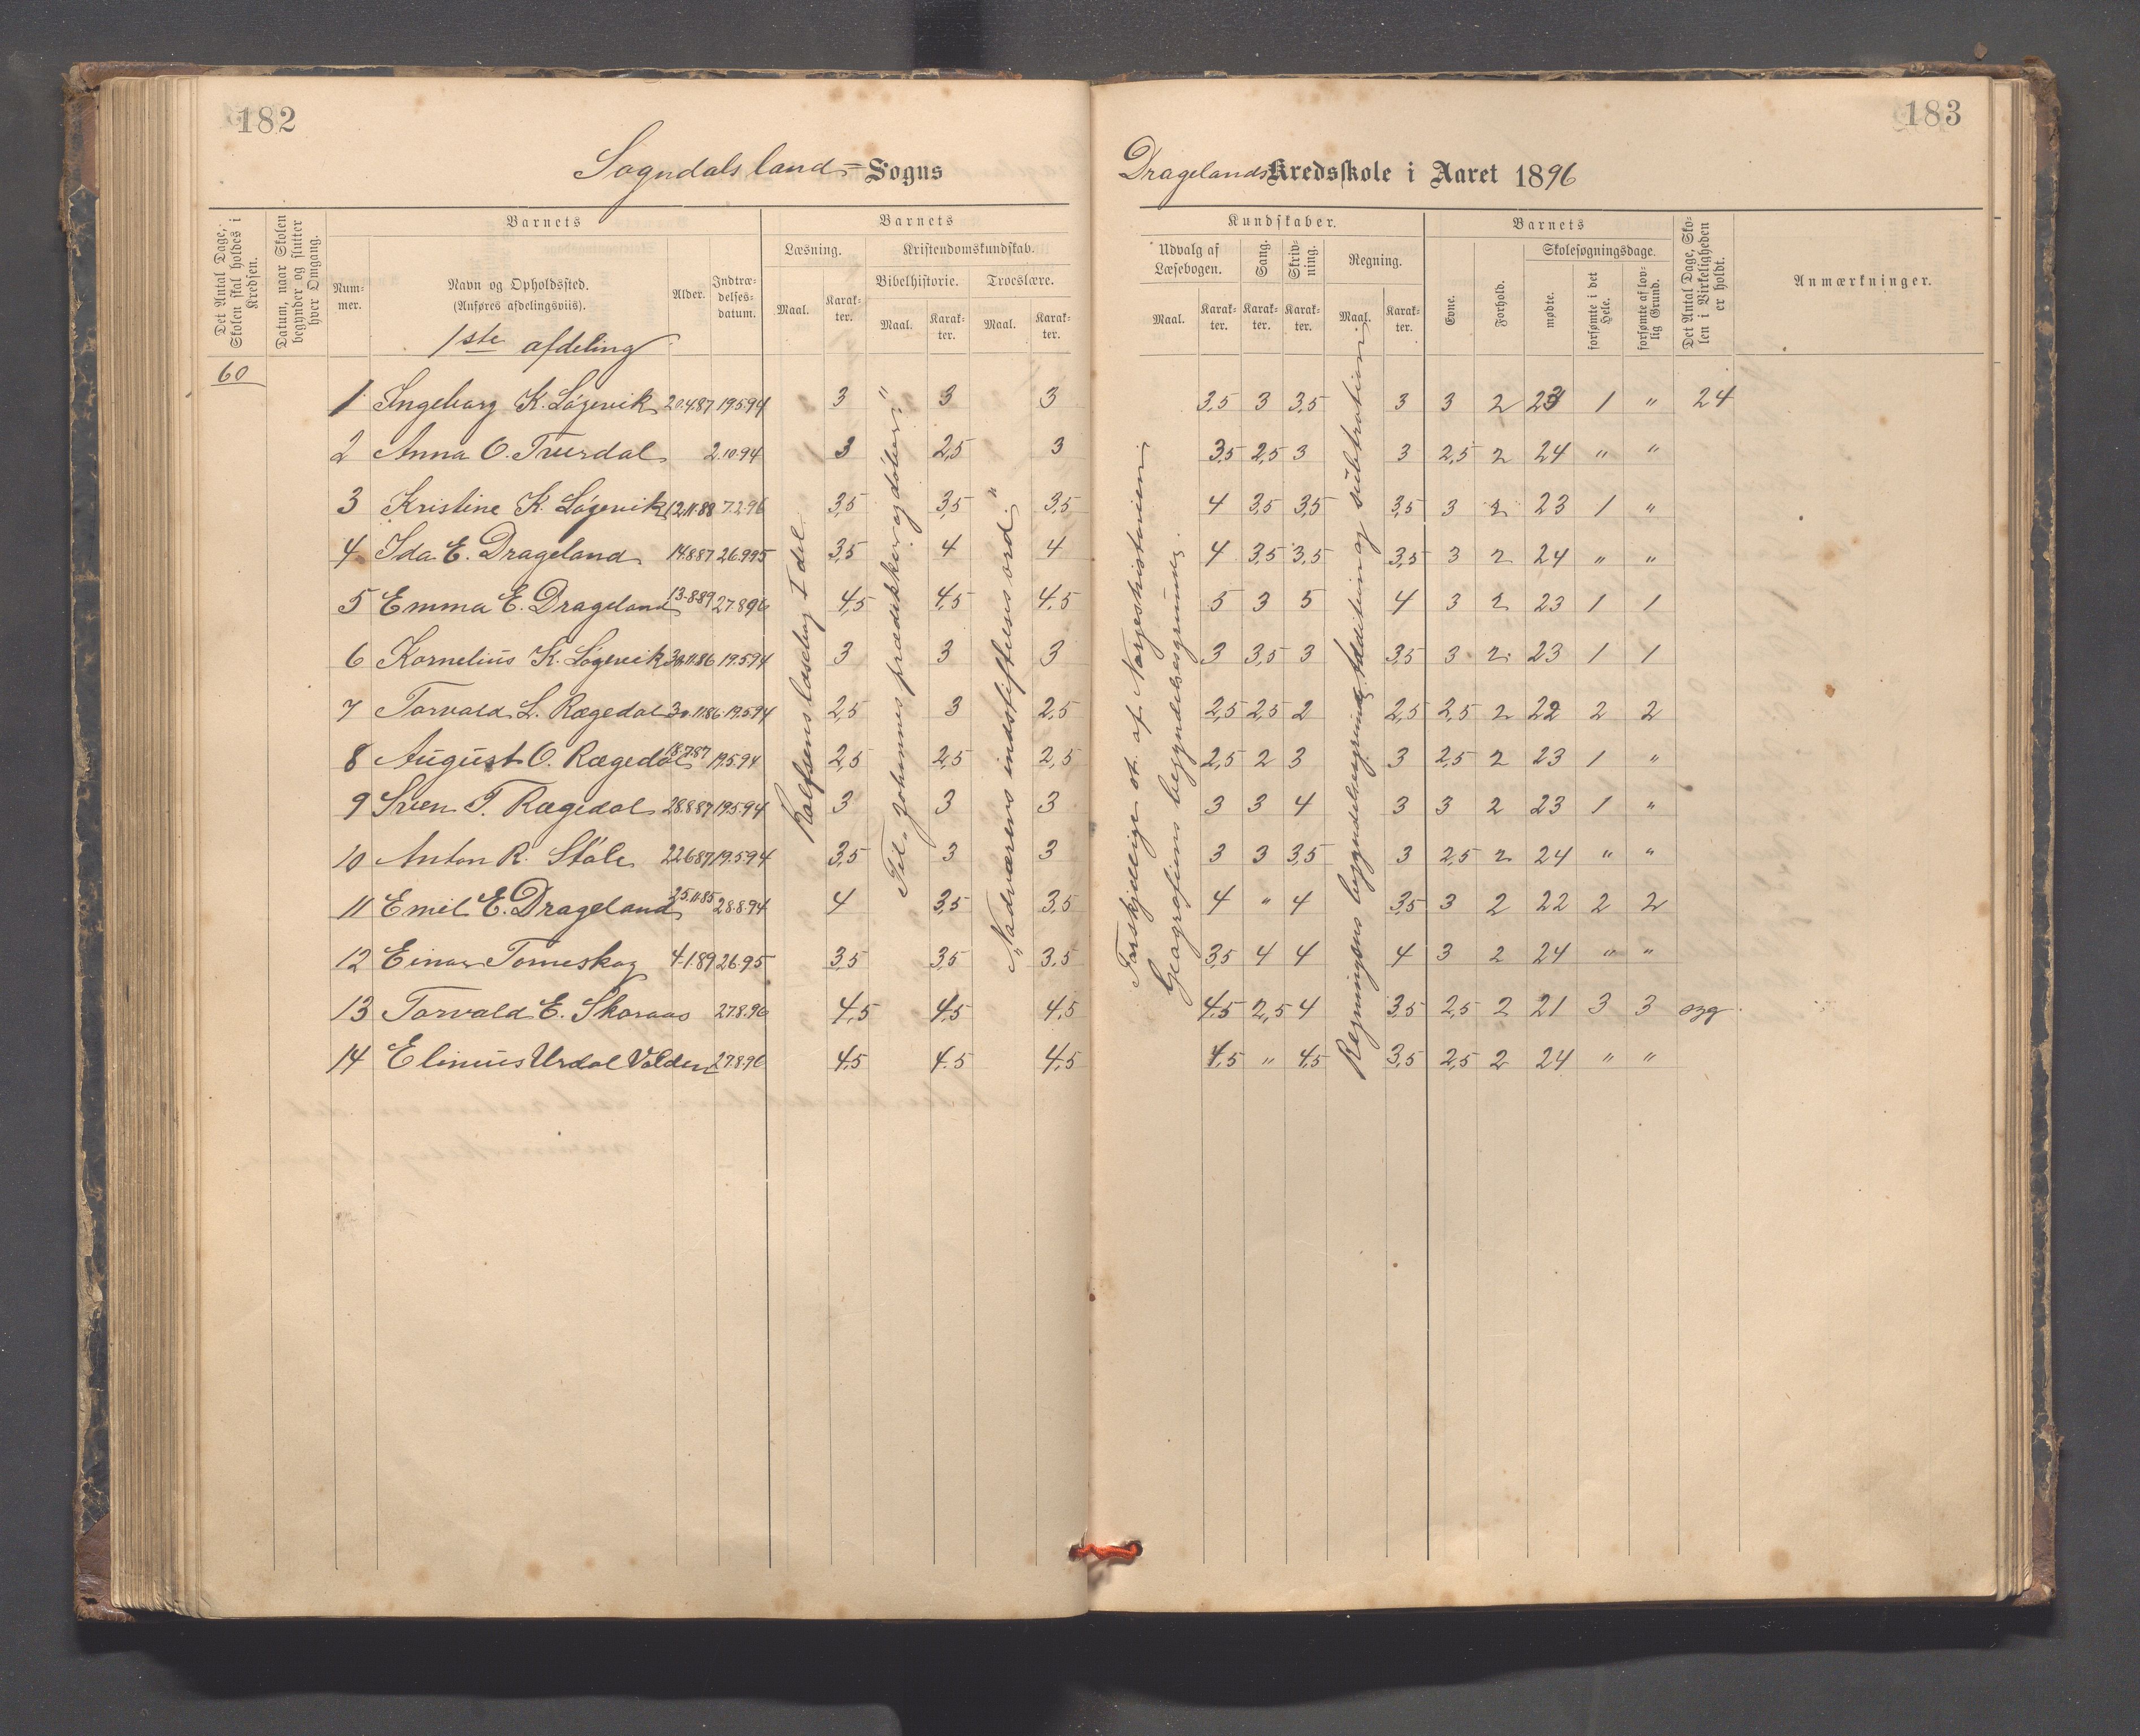 182
Sogndals land = Sogns
Det Antal Dage, Skolen skal holdes i Kredsen.
Datum, naar Skolen begynder og slutter hver Omgang.
Barnets
Num-
mer.
Navn og Opholdssted.
(Anføres afdelingsviis).
Alder.
Indtræ-
delses-
datum.
Barnets
Læsning.
Kristendomskundskab.
Bibelhistorie.
Troeslære.
Maal.
Karak-
ter.
Maal.
Karak-
ter.
Maal.
Karak-
ter.
1ste afdeling
60
1 Ingeborg K. Løgevik 20.4.87 19.5.94 3 3 3
2 Anna O. Tverdal 2.10.94 3 2,5 3
3 Kristine K. Løgevik 12.11.88 7.2.96 3,5 3,5 3,5
4 Ida E. Drageland 14.8.87 26.9.95 3,5 4 4
5 Emma E. Drageland 13.8.89 27.8.96 4,5 4,5 4,5
6 Kornelius K. Løgevik 30.11.86 19.5.94 3 3 3
7 Torvald L. Rægedal 30.11.86 19.5.94 2,5 3 2,5
8 August O. Rægedal 18.7.87 19.5.94 2,5 2,5 2,5
9 Sven T. Rægedal 28.8.87 19.5.94 3 3 3
10 Anton R. Støle 22.6.87 19.5.94 3,5 3 3
11 Emil E. Drageland 25.11.85 28.8.94 4 3,5 3,5
12 Einar Tomeskog 4.1.89 26.95 3,5 3,5 3,5
13 Torvald E. Skoraas 27.8.96 4,5 4,5 4,5
14 Elinius Urdal Valden 27.8.96 4,5 4.5 4,5
Rolfsens læsebog I del.
Til „Johannes prædikker og døber."
„Nadværens indstiftelsesord."
183
Dragelands Kredsskole i Aaret 1896
Kundskaber.
Udvalg af
Læsebogen.
Sang.
Skriv-
ning.
Regning.
Maal.
Karak-
ter.
Karak-
ter.
Karak-
ter.
Maal.
Karak-
ter.
Barnets
Evne.
Forhold.
Skolesøgningsdage.
mødte.
forsømte i det Hele.
forsømte af lov-
lig Grund.
Det Antal Dage, Sko-
len i Virkeligheden
er holdt.
Anmærkninger.
3,5 3 3,5 3 3 2 23 1 " 24
3,5 2,5 3 3 2,5 2 24 " "
4 3,5 3,5 3,5 3 2 23 1 "
4 3,5 3,5 3,5 3 2 24 " "
5 3 5 4 3 2 23 1 1
3 3,5 3 3,5 3 2 23 1 1
2,5 2,5 2 2,5 2,5 2 22 2 2
2,5 2 3 3 2,5 2 23 1 "
3 3 4 3 3 2 23 1 "
3 3 3,5 3 2,5 2 24 " "
4 " 4 3,5 3 2 22 2 2
3,5 4 4 4 3 2 24 " "
4,5 2,5 4 3,5 2,5 2 21 3 3 syg.
4,5 " 4,5 3,5 2,5 2 24 " "
Forskjellige st. af Norgeshistorien
Geografiens begyndelsesgrunde.
Regningens begyndelsesgrunde. Addition og subtraktion.